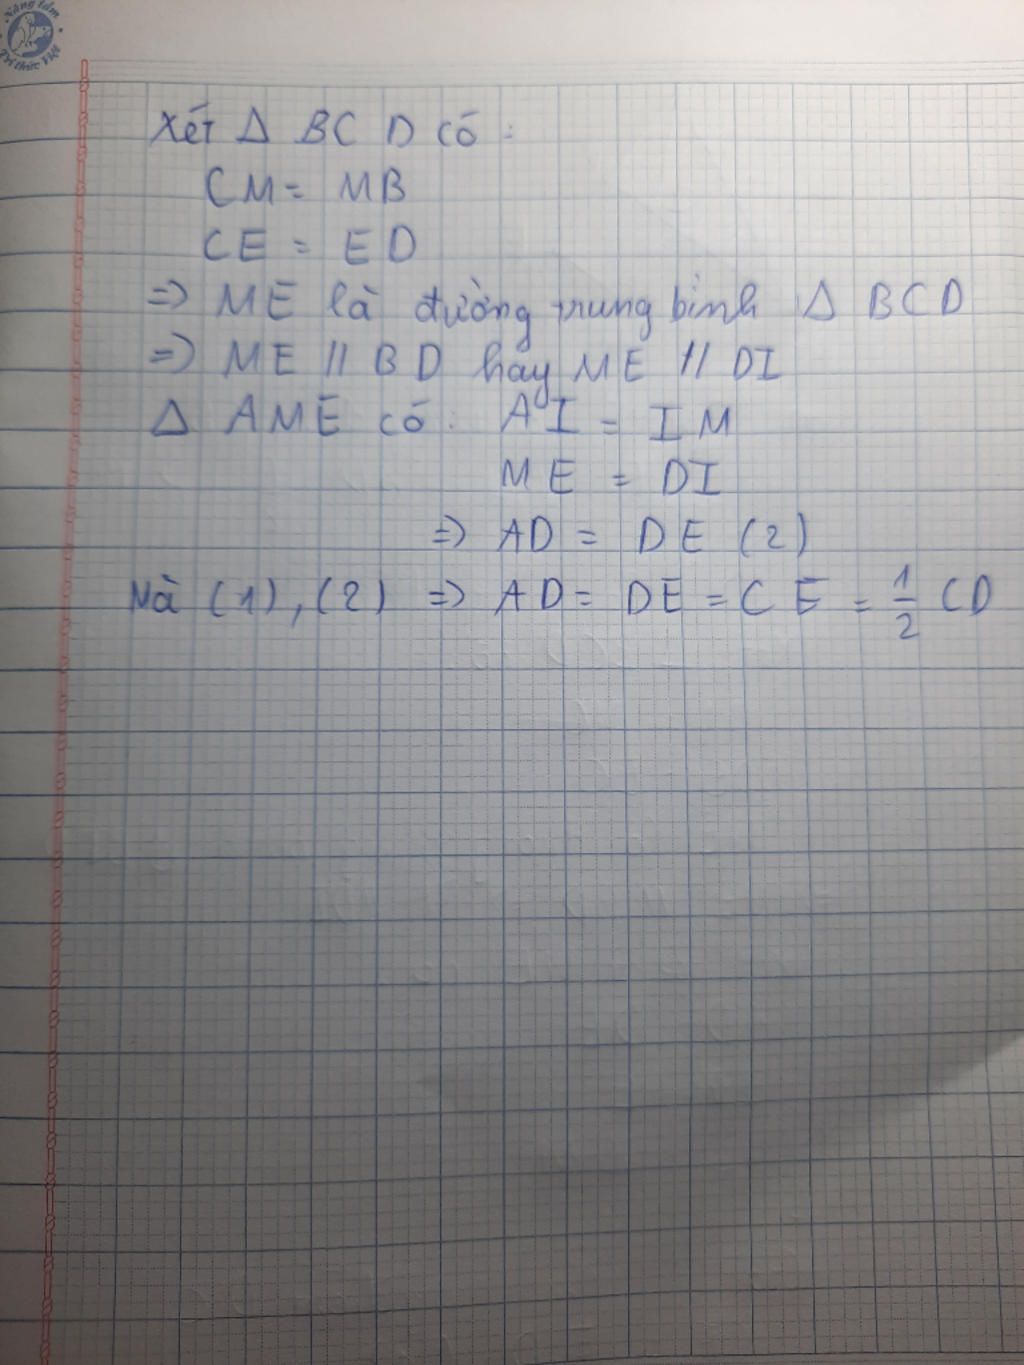 Nâng tầm
Trí thức Việt
Xét Δ BCD có :
CM = MB
CE = ED
=> ME là đường trung bình Δ BCD
=> ME // BD hay ME // DI
Δ AME có : AI = IM
ME = DI
=> AD = DE (2)
Mà (1), (2) => AD = DE = CE = 1/2 CD